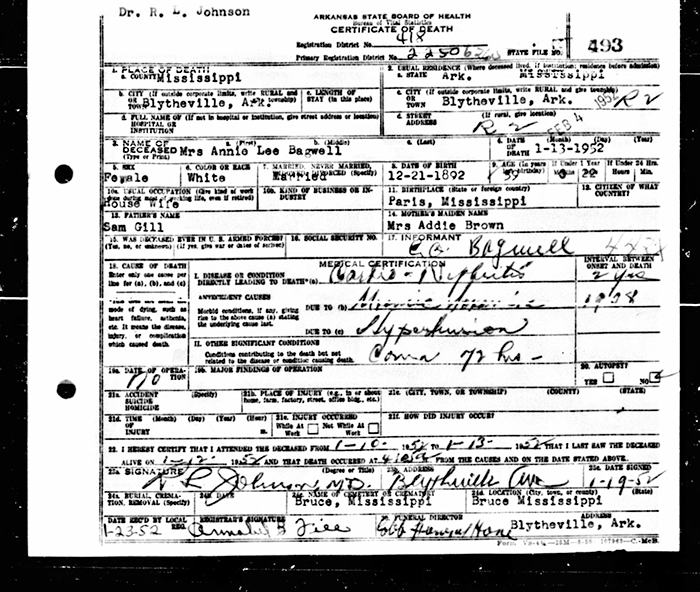 Dr. R. L. Johnson
ARKANSAS STATE BOARD OF HEALTH
Bureau of Vital Statistics
CERTIFICATE OF DEATH
Registration District No. 418
Primary Registration District No.
STATE FILE NO. 493
1. PLACE OF DEATH
a. COUNTY Mississippi
2. USUAL RESIDENCE (Where deceased lived, if institution: residence before admission)
a. STATE Ark. Mississippi
b. CITY (If outside corporate limits, write RURAL and give township) OR TOWN Blytheville, Ark.
c. LENGTH OF STAY (in this place)
c. CITY (If outside corporate limits, write RURAL and give township) OR TOWN Blytheville, Ark. R 2
d. FULL NAME OF (If not in hospital or institution, give street address or location) HOSPITAL OR INSTITUTION
d. STREET ADDRESS (If rural, give location) R 2
FEB 4 1952
3. NAME OF DECEASED (Type or Print) a. (First) b. (Middle) c. (Last)
Mrs Annie Lee Bagwell
4. DATE OF DEATH (Month) (Day) (Year)
1-13-1952
5. SEX Female
6. COLOR OR RACE White
7. MARRIED, NEVER MARRIED, (Specify) Married
8. DATE OF BIRTH 12-21-1892
9. AGE (In years last birthday) 59 If Under 1 Year 0 22 If Under 24 Hrs. Hours Min.
10a. USUAL OCCUPATION (Give kind of work done during most of working life, even if retired) House Wife
10b. KIND OF BUSINESS OR INDUSTRY
11. BIRTHPLACE (State or foreign country) Paris, Mississippi
12. CITIZEN OF WHAT COUNTRY?
13. FATHER'S NAME Sam Gill
14. MOTHER'S MAIDEN NAME Mrs Addie Brown
15. WAS DECEASED EVER IN U. S. ARMED FORCES? (Yes, no, or unknown) (If yes, give war or dates of service)
16. SOCIAL SECURITY NO.
17. INFORMANT Bagwell
18. CAUSE OF DEATH
Enter only one cause per line for (a), (b), and (c)
MEDICAL CERTIFICATION
INTERVAL BETWEEN ONSET AND DEATH
I. DISEASE OR CONDITION DIRECTLY LEADING TO DEATH* (a) 2 yrs
mode of dying, such as heart failure, asthenia, etc. It means the disease, injury, or complication which caused death.
ANTECEDENT CAUSES
Morbid conditions, if any, giving rise to the above cause (a) stating the underlying cause last.
DUE TO (b)
DUE TO (c)
II. OTHER SIGNIFICANT CONDITIONS
Conditions contributing to the death but not related to the disease or condition causing death.
Coma 72 hrs -
19a. DATE OF OPERATION no
19b. MAJOR FINDINGS OF OPERATION
20. AUTOPSY? YES NO
21a. ACCIDENT SUICIDE HOMICIDE (Specify)
21b. PLACE OF INJURY (e.g., in or about home, farm, factory, street, office bldg., etc.)
21c. (CITY, TOWN, OR TOWNSHIP) (COUNTY) (STATE)
21d. TIME OF INJURY (Month) (Day) (Year) (Hour) m.
21e. INJURY OCCURRED While At Work Not While At Work
21f. HOW DID INJURY OCCUR?
22. I HEREBY CERTIFY THAT I ATTENDED THE DECEASED FROM 1-10- 1952 TO 1-13- 1952 THAT I LAST SAW THE DECEASED
ALIVE ON 1-12- 1952 AND THAT DEATH OCCURRED AT FROM THE CAUSES AND ON THE DATE STATED ABOVE.
23a. SIGNATURE (Degree or Title) R L Johnson M.D.
23b. ADDRESS Blytheville Ark
23c. DATE SIGNED 1-19-52
24a. BURIAL, CREMATION, REMOVAL (Specify)
24b. DATE
24c. NAME OF CEMETERY OR CREMATORY Bruce, Mississippi
24d. LOCATION (City, town, or county) (State) Bruce Mississippi
DATE REC'D BY LOCAL REG. 1-23-52
REGISTRAR'S SIGNATURE
FUNERAL DIRECTOR Home
ADDRESS Blytheville, Ark.